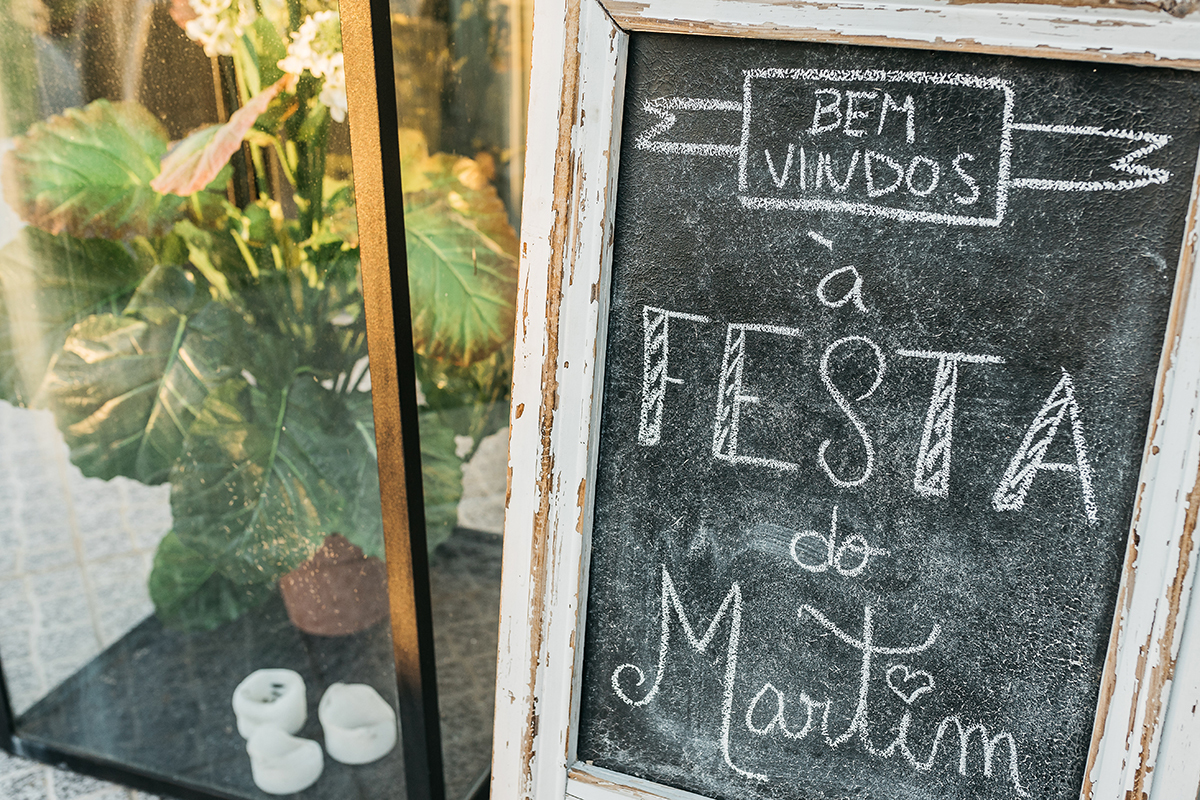 BEM
VINDOS
à
FESTA
do
Martim